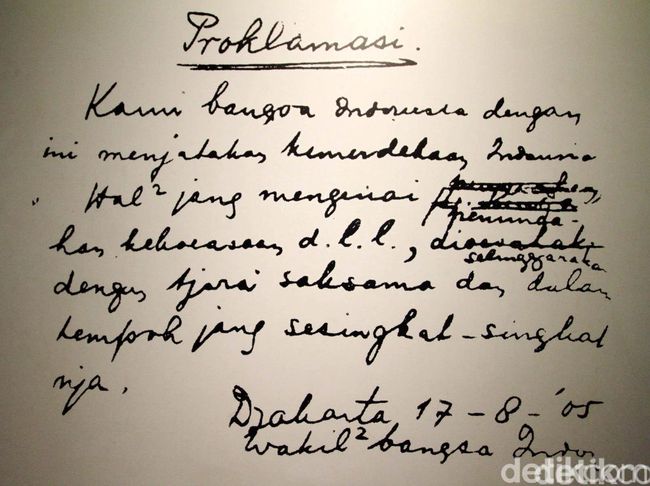 Proklamasi.
Kami bangsa Indonesia dengan
ini menjatakan kemerdekaan Indonesia
Hal² jang mengenai
peminda-
han kekoeasaan d.l.l., dioesahakan
diselenggarakan
dengan tjara saksama dan dalam
tempoh jang sesingkat-singkat
nja.
Djakarta 17-8-'05
Wakil² bangsa Indon
detikcom